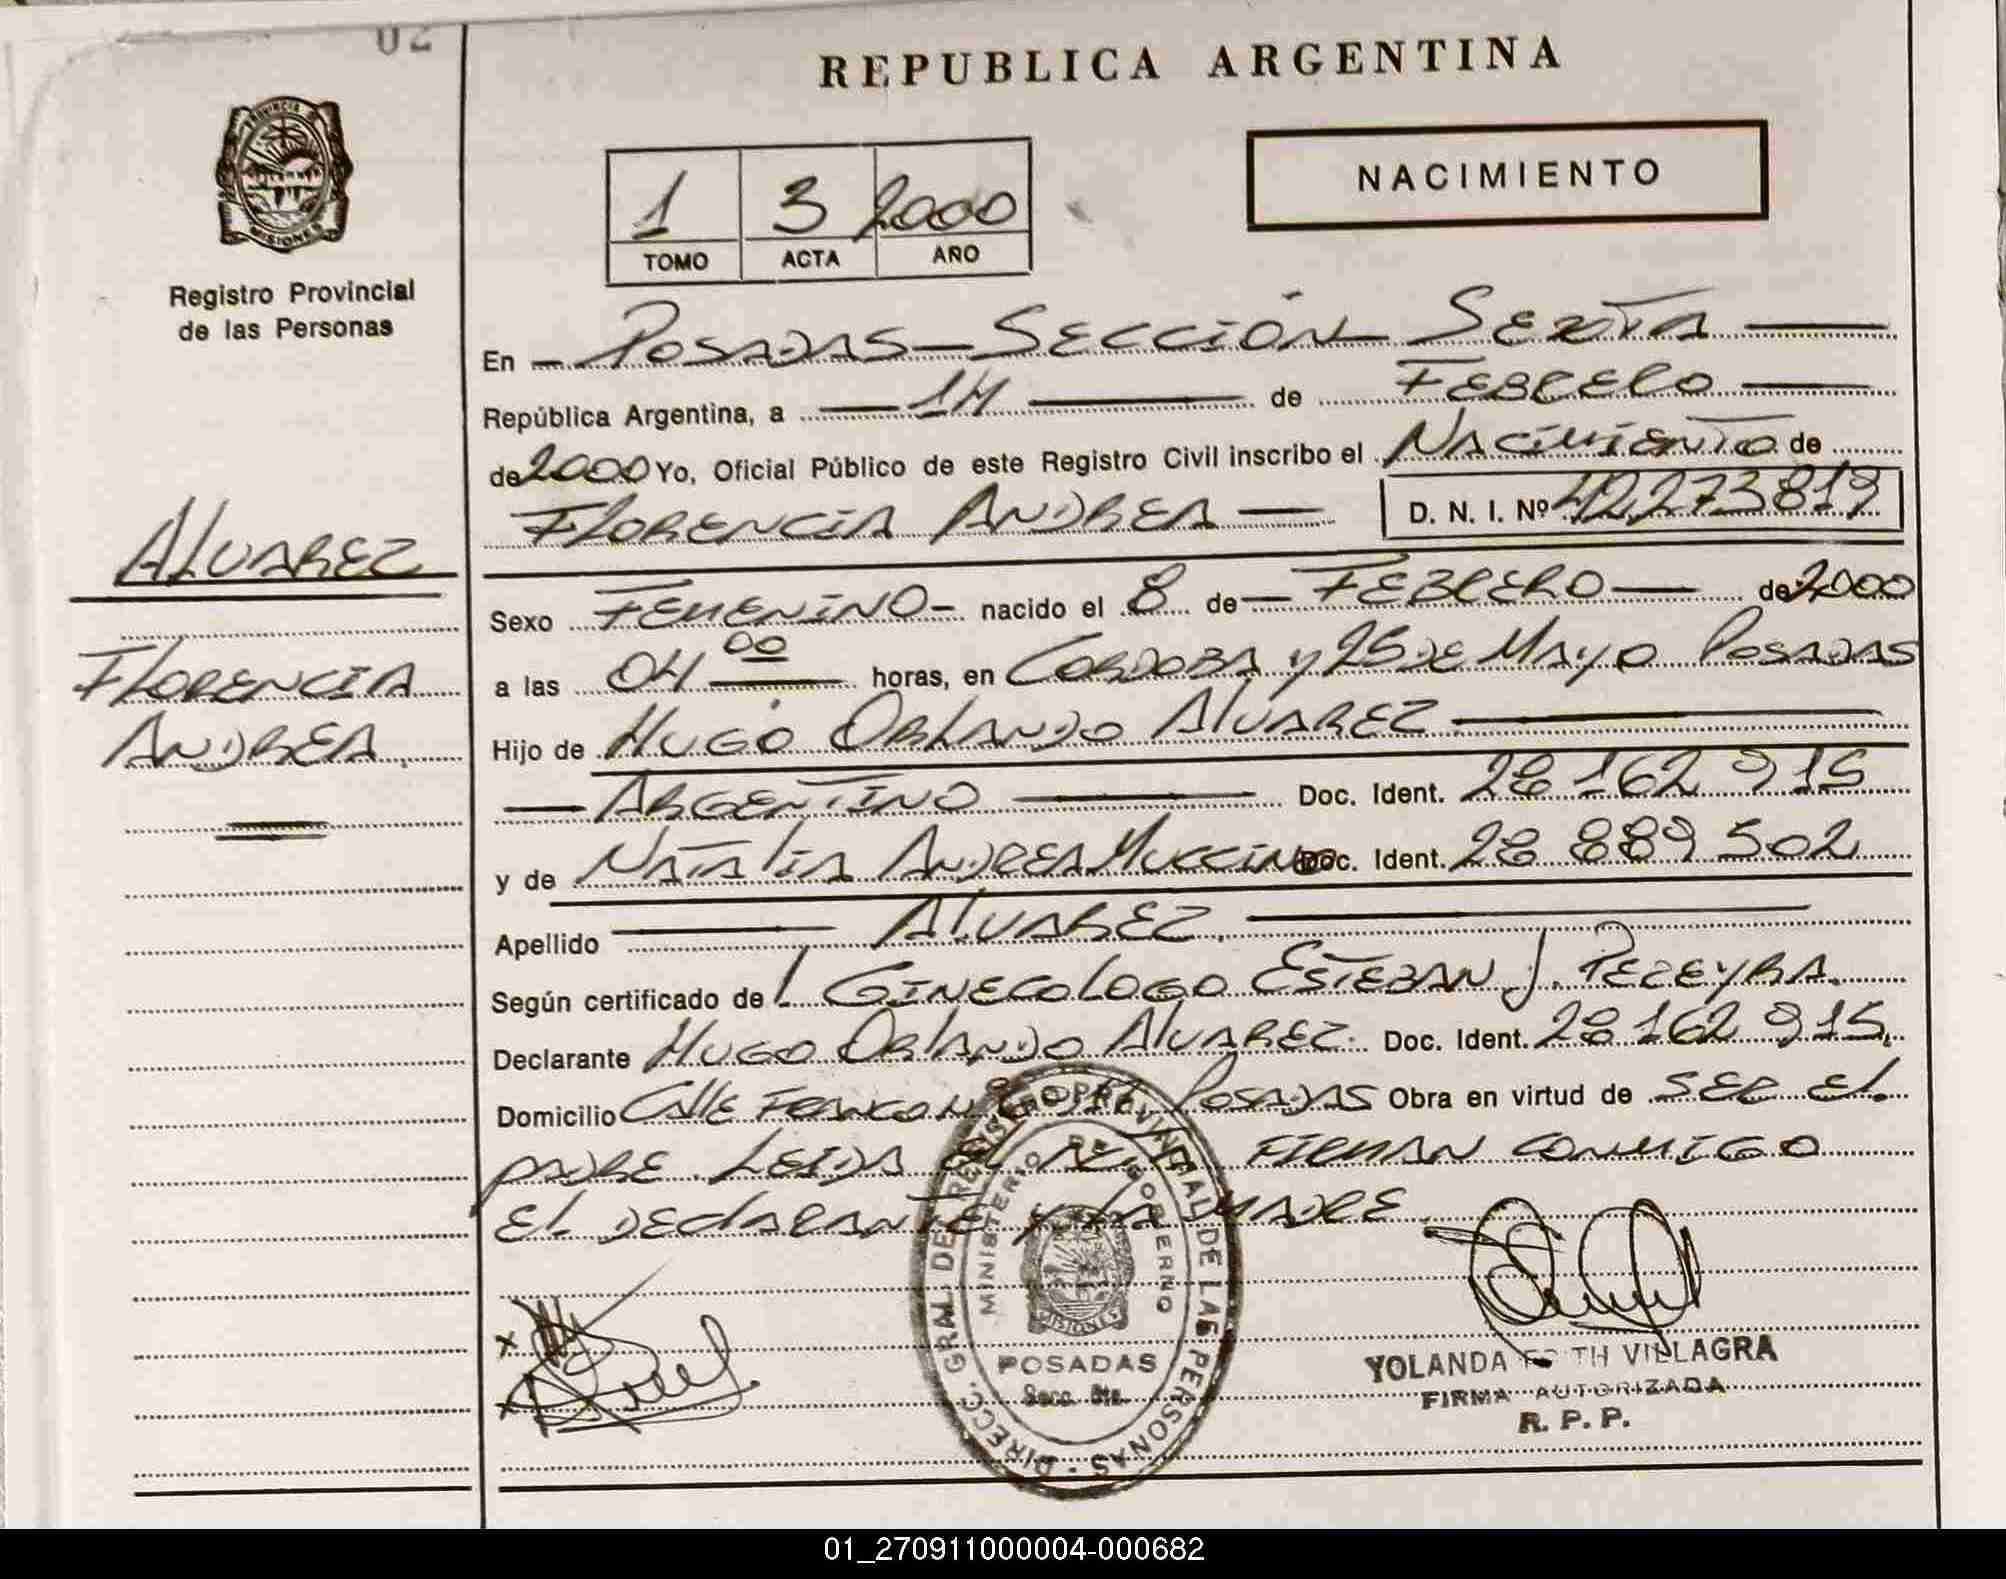 REPUBLICA ARGENTINA
NACIMIENTO
1 3 2000
TOMO ACTA AÑO
PROVINCIA DE MISIONES
Registro Provincial
de las Personas
ALVAREZ
FLORENCIA
ANDREA
En - POSADAS - SECCIÓN SEXTA
República Argentina, a 14 de FEBRERO
de 2000 Yo, Oficial Público de este Registro Civil inscribo el NACIMIENTO de
FLORENCIA ANDREA D. N. I. Nº 42,273,819
Sexo FEMENINO - nacido el 8 de FEBRERO de 2000
a las 04 00 horas, en CORDOBA y 25 DE MAYO POSADAS
Hijo de HUGO ORLANDO ALVAREZ
ARGENTINO Doc. Ident. 28 162 915
y de NATALIA ANDREA MUCCINO Doc. Ident. 28 889 502
Apellido ALVAREZ.
Según certificado de L GINECOLOGO ESTEBAN J. PEREYRA.
Declarante HUGO ORLANDO ALVAREZ. Doc. Ident. 28 162 915.
Domicilio CALLE FRANCO POSADAS Obra en virtud de SER EL
PADRE. LEIDA EL ACTA FIRMAN CONMIGO
EL DECLARANTE y LA MADRE.
DIRECC. GRAL. DEL REGISTRO PROVINCIAL DE LAS PERSONAS
MINISTERIO DE GOBIERNO
MISIONES
POSADAS
Secc. 6ta.
YOLANDA VILLAGRA
FIRMA AUTORIZADA
R. P. P.
01_270911000004-000682